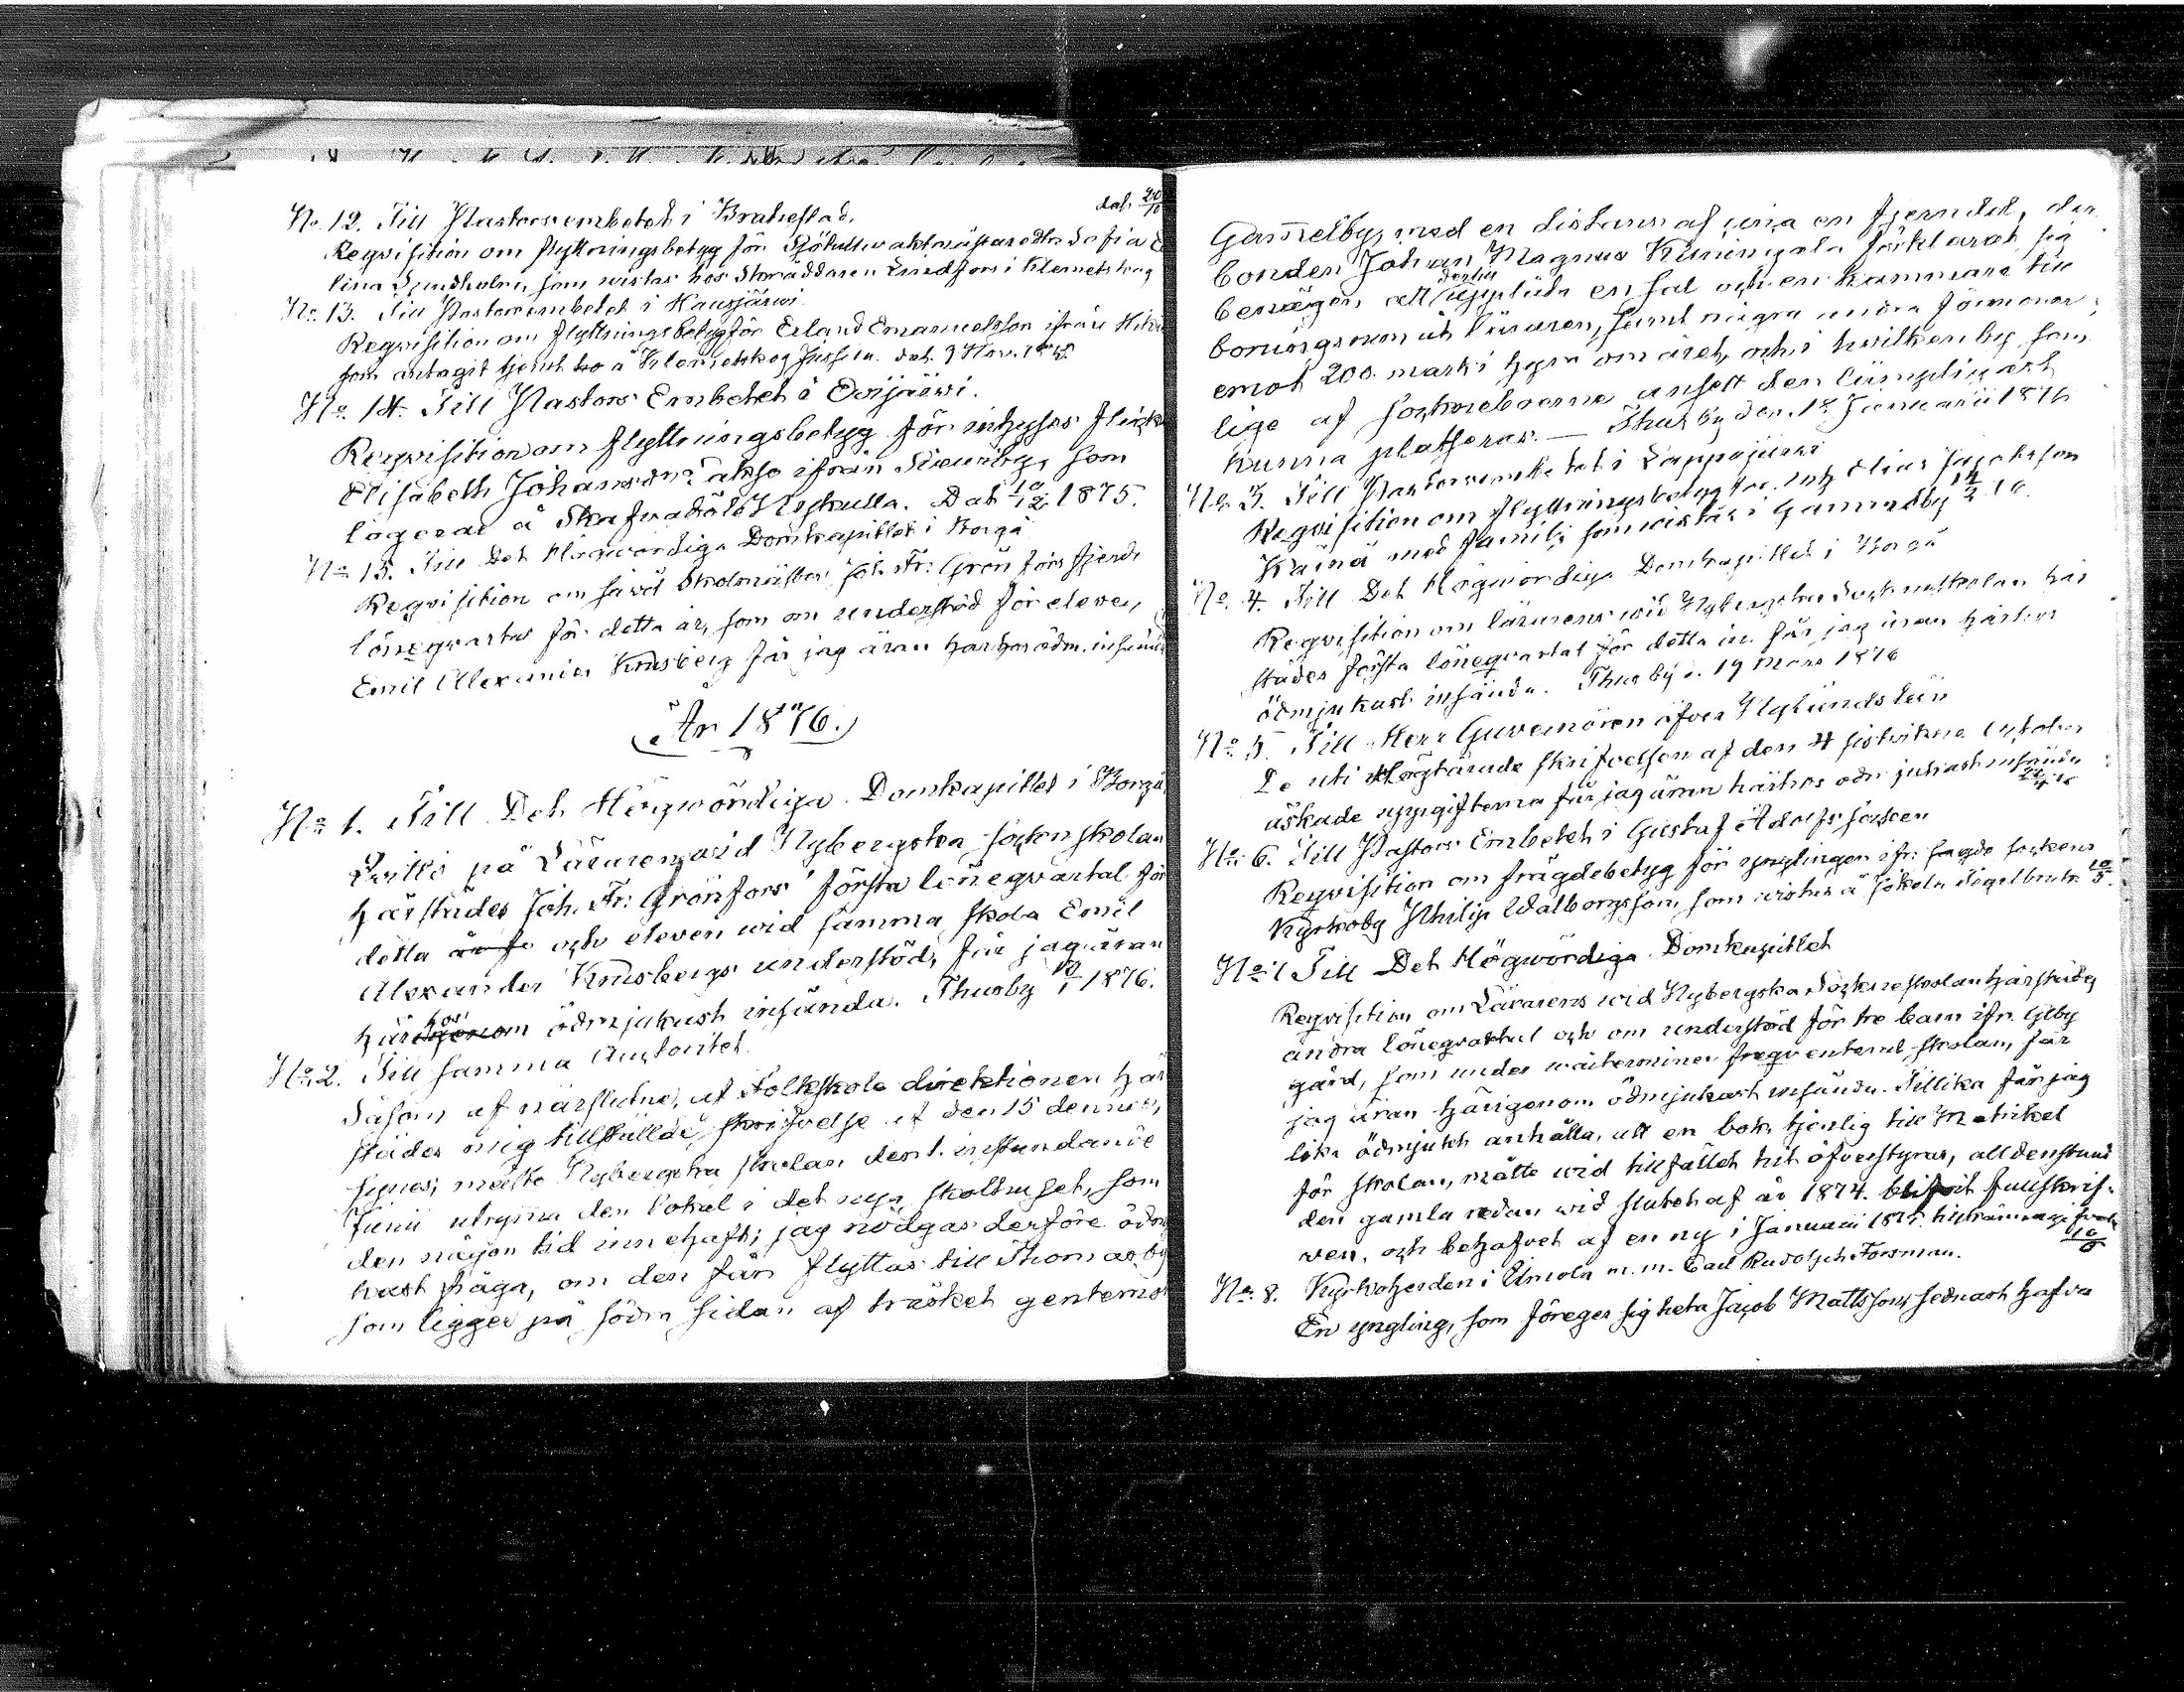 No 12. Till Pastorsembetet i Brahestad. dat. 20/10
Reqvisition om flyttningsbetyg för Sjötullvaktmästaredottr Sofia
lina Sundholm, som wistas hos Skräddaren Lindfors i Klemetskog
No 13. Till Pastorsembetet i Hausjärwi
Reqvisition om flyttningsbetyg för Erland Emanuelsson ifrån
som antagit tjenst å Klemetskog Jussila. dat. 9 Nov. 1875.
No 14. Till Pastors Embetet i Evijärwi.
Reqvisition om flyttningsbetyg för inhyses
Elisabeth Johansdr: ifrån som
logerar å Skafvaböle Nykulla. Dat 10/12 1875.
No 15. Till Det Högwördiga Domkapitlet i Borgå
Reqvisition om såwäl Skolmästar Joh. Fr: Grönfors fjerde
lönegvartal för detta år, som om understöd för eleven,
Emil Alexander Knusberg får jag äran härhos ödm. insända
År 1876.
No 1. Till Det Högwördiga Domkapitlet i Borgå
Qvitto på Läraren wid Nybergska sockneskolan
härstädes Joh. Fr: Grönfors' första lönegvartal för
detta år och eleven wid samma skola Emil
Alexander Knusbergs understöd, får jag äran
härhos ödmjukast insända. Thusby 10/1 1876.
No 2. Till samma Auctoritet.
Såsom af närslutne, af Folkskole direktionen här
städes mig tillställde, skrifvelse af den 15 dennes,
synes; måste Nybergska skolan den 1. instundande
Junii utrymma den lokal i det nya skolhuset, som
den någon tid innehaft; jag nödgas derföre ödmju
kast fråga, om den får flyttas till Thomasby
som ligger på södra sidan af träsket gentemot
Gammelby, med en distans af circa en fjerndel, der
bonden Johan Magnus Kuningala förklarat sig
benägen att dertill upplåta en sal och en kammare till
boningsrum åt läraren, samt några andra förmoner
emot 200. mark i hyra om året, och i hvilken by som
lige af socknoboerne ansett den lämpligast
kunna placeras. — Thusby den 18 Januarii 1876
No 3. Till Pastorsembetet i Lappajärwi
Reqvisition om flyttningsbetyg för inh. Elias Jacobsson
med familj som wistas i Gammelby
No 4. Till Det Högwördiga Domkapitlet i Borgå
Reqvisition om lärarens wid Nybergska Sockneskolan här
städes första lönegvartal för detta år får jag äran härhos
ödmjukast insända. Thusby d. 19 Mars 1876
No 5. Till Herr Guvernören öfver Nylands län
De uti Högtärade skrifvelsen af den 4 sistvikne
äskade uppgifterna får jag äran härhos ödmjukast insända
No 6. Till Pastors Embetet i Gustaf Adolfs socken
Reqvisition om frägdebetyg för ynglingen ifr: sagde sockens
Kyrkoby Philip Walborgsson, som wistas å Jokela Tegelbruk 10/5.
No 7 Till Det Högwördiga Domkapitlet
Reqvisition om Lärarens wid Nybergska Sockneskolan härstädes
andra lönegvartal och om understöd för tre barn ifr. Gby
gård, som under wårterminen freqventerat skolan, får
jag äran härigenom ödmjukast insända. Tillika får jag
lika ödmjukt anhålla, att en bok, tjenlig till Matrikel
för skolan, måtte wid tillfället hit öfverstyras, alldenstund
den gamla redan wid slutet af år 1874. blifvit fullskrif-
ven, och behofvet af en ny i Januarii 1875
10/6
No 8. Kyrkoherden i Umola m. m. Carl Rudolph Forsman.
En yngling, som föreger sig heta Jacob Mattsson, sednast hafva